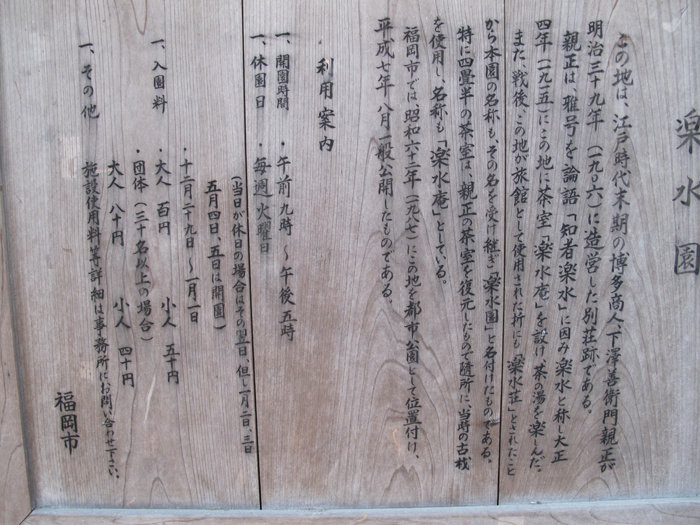 楽水園
この地は、江戸時代末期の博多商人、下澤善衛門親正が
明治三十九年（一九〇六）に造営した別荘跡である。
親正は、雅号を論語「知者楽水」に因み楽水と称し大正
四年（一九一五）にこの地に茶室「楽水庵」を設け茶の湯を楽しんだ。
また、戦後、この地が旅館として使用された折にも「楽水荘」とされたこと
から本園の名称も、その名を受け継ぎ「楽水園」と名付けたものである。
特に四畳半の茶室は、親正の茶室を復元したもので随所に、当時の古材
を使用し、名称も「楽水庵」としている。
福岡市では、昭和六十二年（一九八七）にこの地を都市公園として位置付け、
平成七年八月一般公開したものである。
利用案内
一、開園時間 ・午前九時〜午後五時
一、休園日 ・毎週火曜日
（当日が休日の場合はその翌日、但し一月二日、三日
五月四日、五日は開園）
・十二月二十九日〜一月一日
一、入園料 ・大人 百円 小人 五十円
・団体（三十名以上の場合）
大人 八十円 小人 四十円
一、その他 施設使用料等詳細は事務所にお問い合わせ下さい。
福岡市